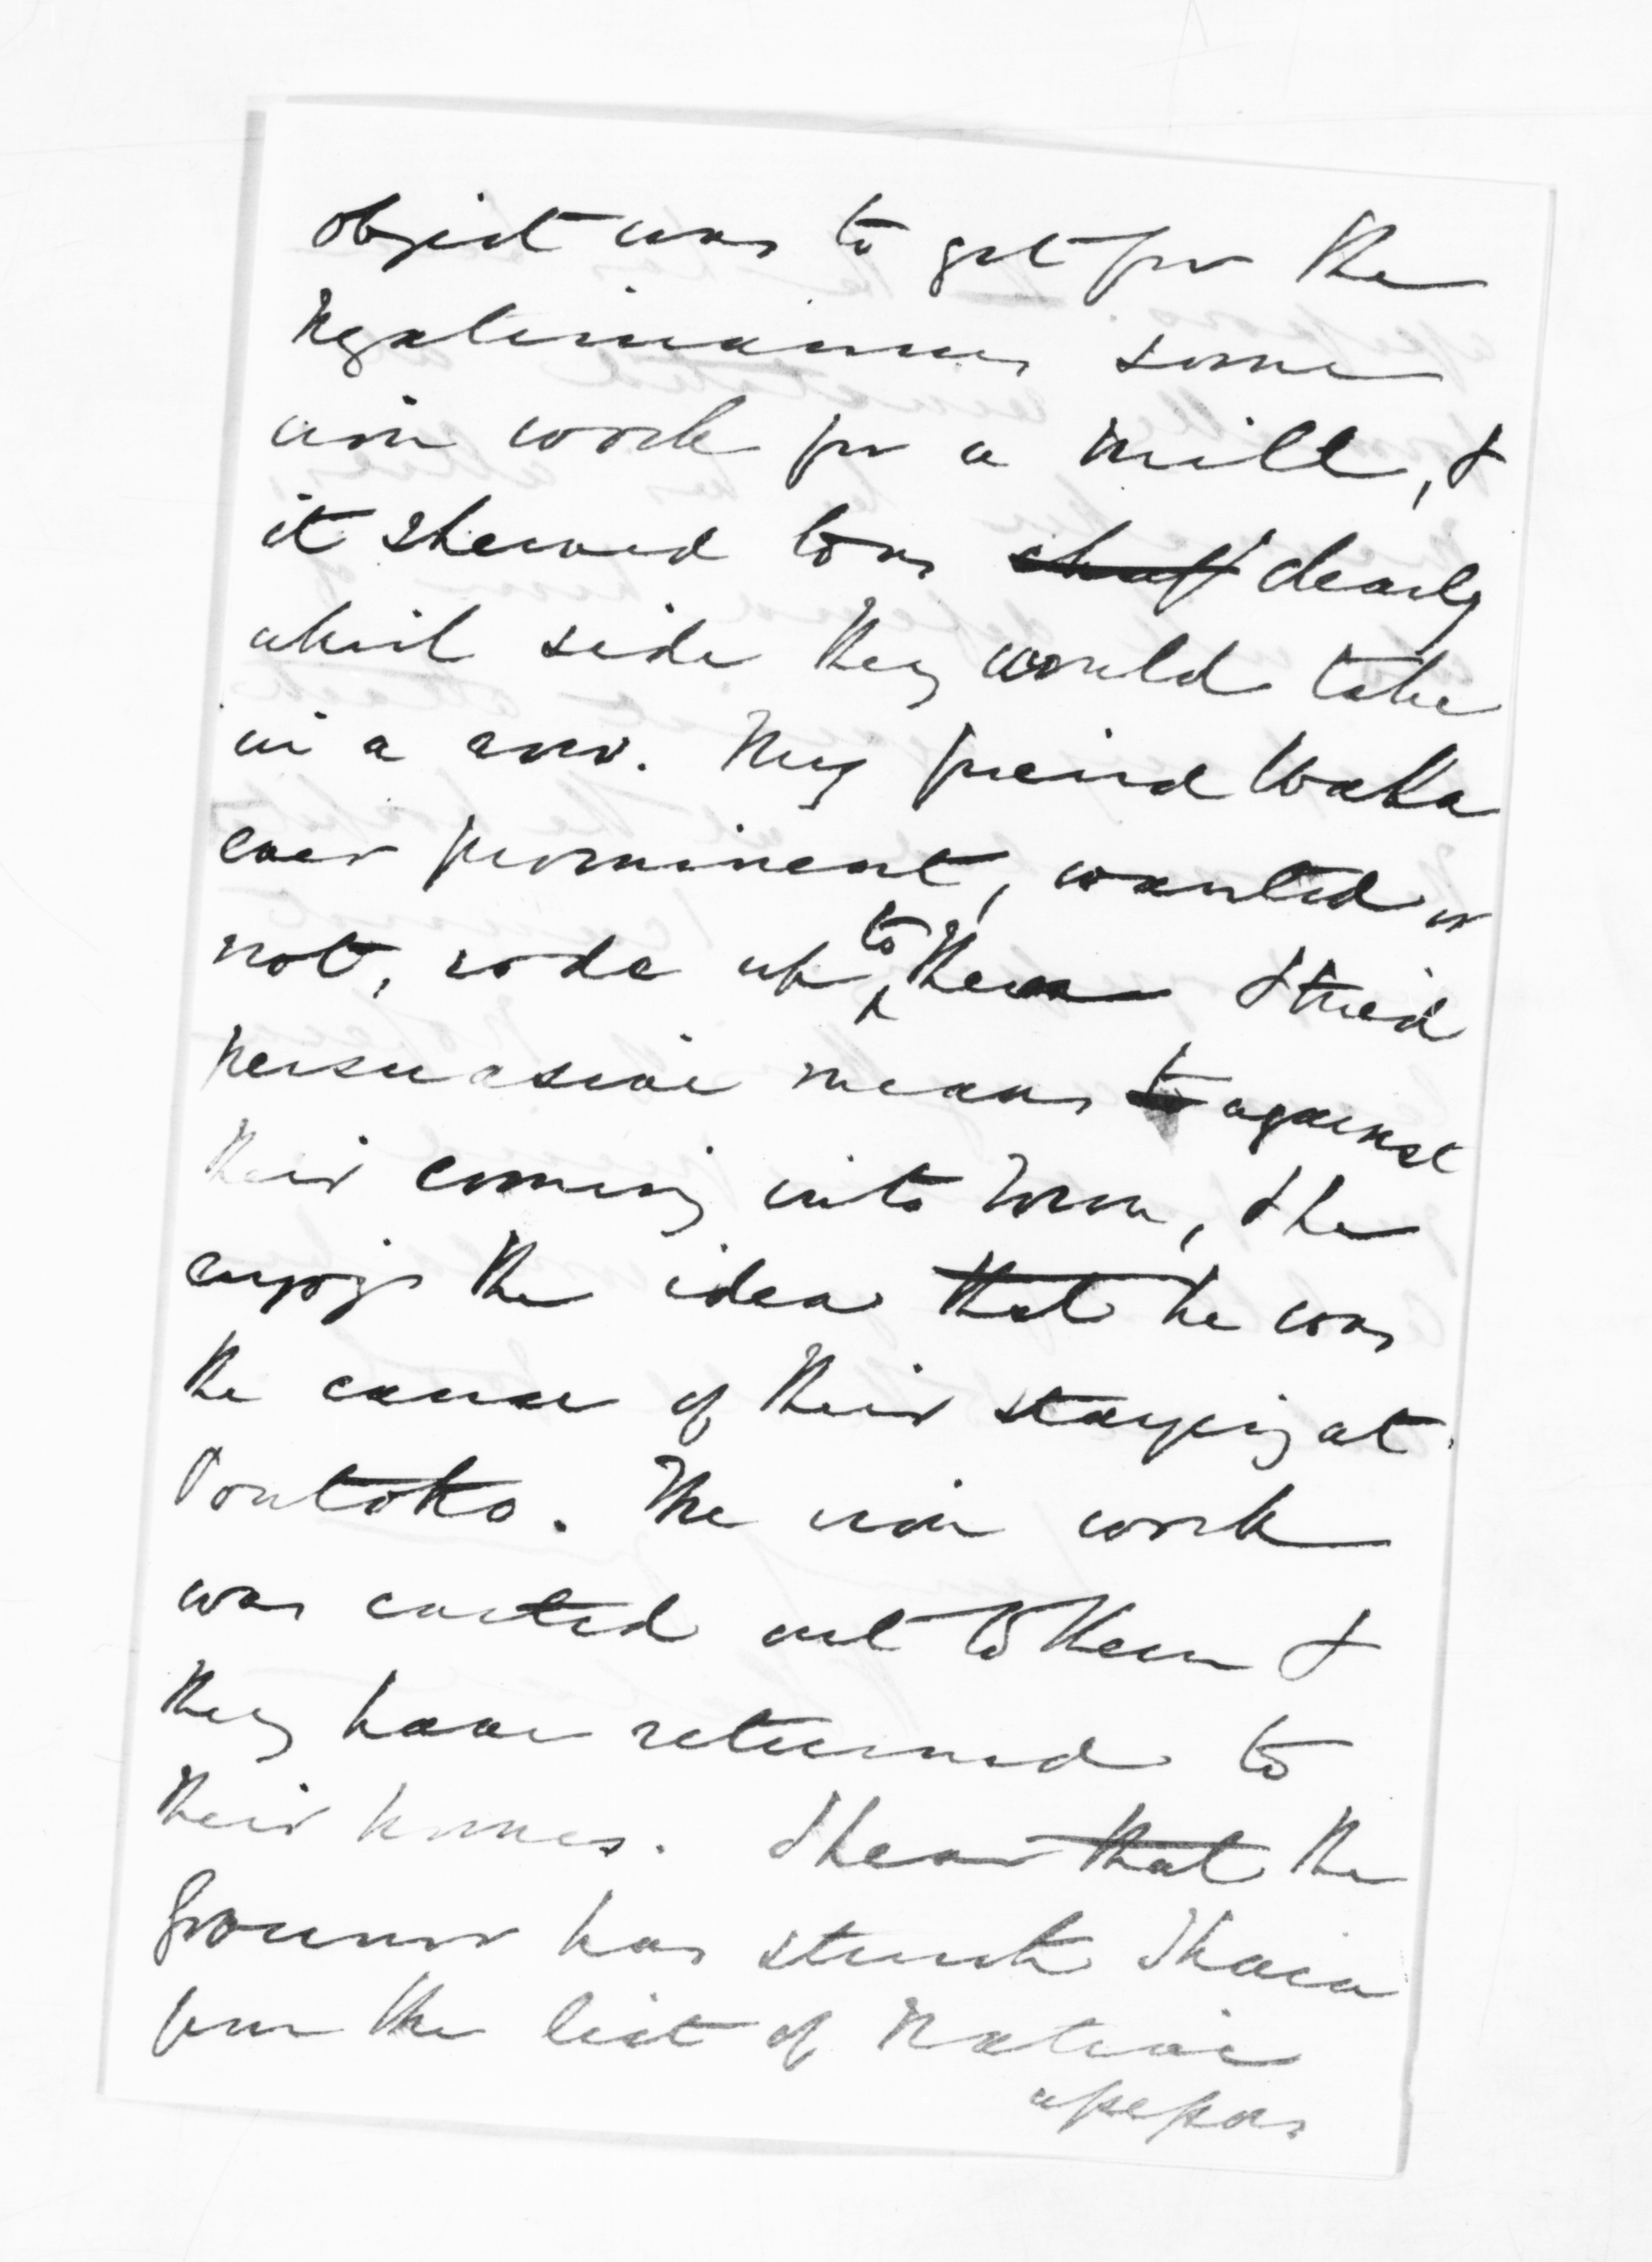 object was to get for the
Ngatiruanuis some
iron work for a mill, &
it shewed too clearly
which side they would take
in a row. My friend
ever prominent, wanted or
not, rode up to them & tried
persuasive means to against
their coming into town, & he
enjoys the idea that he was
the cause of their staying at
Poutoko. The iron work
was carted out to them &
they have returned to
their homes. I hear that the
Governor has struck Ihaia
from the list of Native
assessors